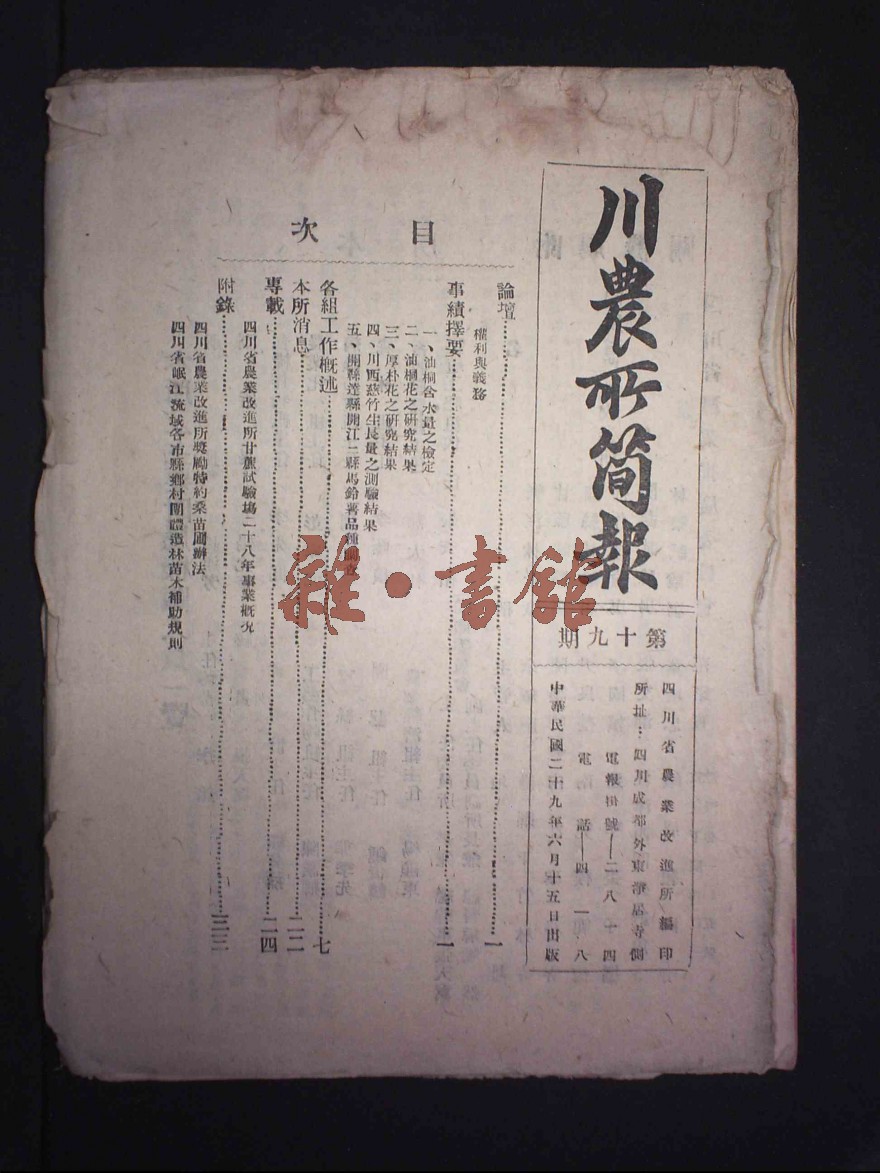 川農所简報
第十九期
四川省農業改進所編印
所址：四川成都外東淨居寺側
電報掛號—二八一四
電話—四一八
中華民國二十九年六月十五日出版
目次
論壇……一
權利與義務
事績擇要……一
一、油桐含水量之檢定
二、油桐花之研究結果
三、厚朴花之研究結果
四、川西慈竹生長量之測驗結果
五、開縣達縣開江三縣馬鈴薯品種
各組工作概述……七
本所消息……二二
專載……二四
四川省農業改進所甘蔗試驗場二十八年事業概况
附錄……三三
四川省農業改進所獎勵特約桑苗圃辦法
四川省岷江流域各市縣鄉村團體造林苗木補助規則
雜·書館